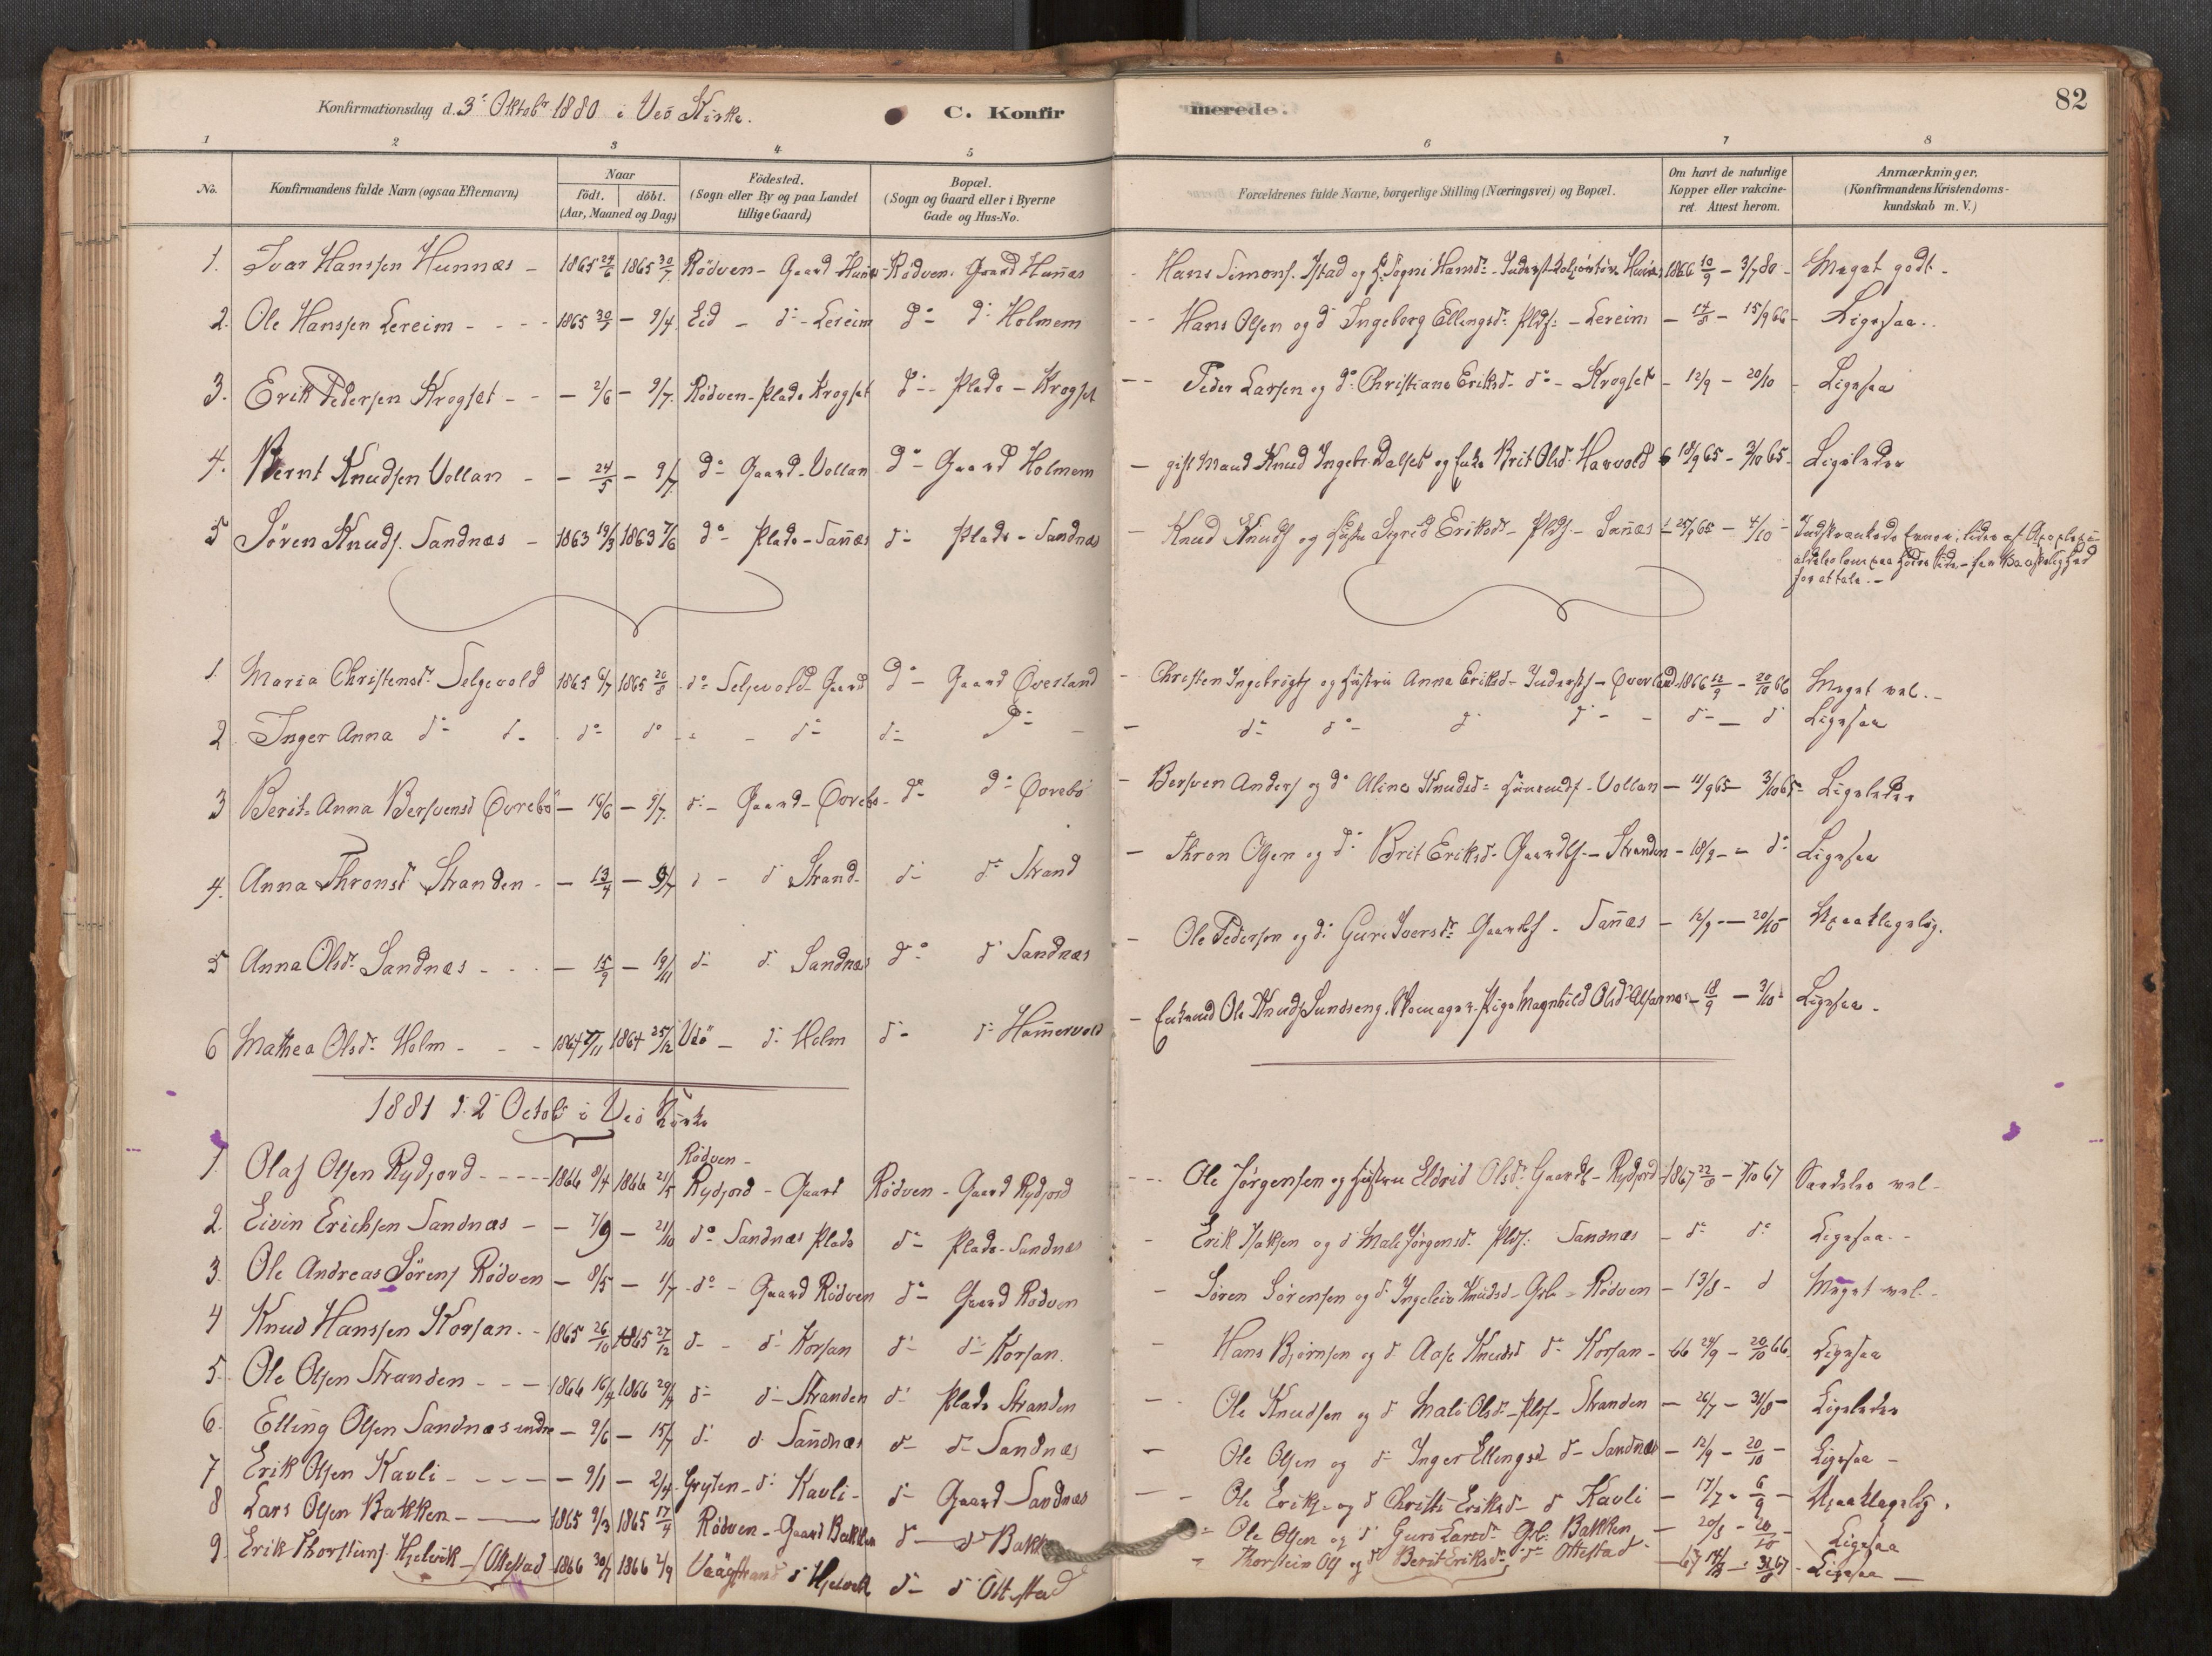 Konfirmationsdag d. 3' Oktobr 1880 i Veö Kirke.
C. Konfirmerede.
82
1 2 3 4 5 6 7 8
No.
Konfirmandens fulde Navn (ogsaa Efternavn)
Naar
födt. döbt.
(Aar, Maaned og Dag)
Födested.
(Sogn eller By og paa Landet
tillige Gaard)
Bopæl.
(Sogn og Gaard eller i Byerne
Gade og Hus-No.
Forældrenes fulde Navne, borgerlige Stilling (Næringsvei) og Bopæl.
Om havt de naturlige
Kopper eller vakcine-
ret. Attest herom.
Anmærkninger.
(Konfirmandens Kristendoms-
kundskab m. V.)
1. Ivar Hanssen Hunnæs - 1865 24/6 1865 30/7 Rödven - Gaard Hunæs - Rödven. Gaard Hunæs - Hans Simons. Istad og Hansdr 1866 10/9 - 3/7 80 - Meget godt -
2. Ole Hanssen Lereim - 1865 30/ - 9/4 Eid - do - Lereim do do Holmem - Hans Olsen og do Ingeborg Ellingsdr Plds: - Lereim - 14/8 - 15/9 66 - Ligesaa.
3. Erik Pedersen Krogset - - 2/6 - 9/7 Rödven - Plads Krogset do - Plads - Krogset - Peder Larsen og do Christiane Eriksd - do - Krogset - 12/9 - 20/10 - Ligesaa
4. Bernt Knudsen Vollan - - 24/5 - 9/7 do - Gaard - Vollan do - Gaard Holmem - gift Mand Knud Ingebr. Dalset og Enke Brit Olsd. Harvold 18/9 65 - 3/10 65 - Ligeledes
5 Sören Knuds. Sandnæs - 1863 19/3 1863 7/6 do - Plads - Sanæs do Plads - Sandnæs - Knud Knuds og Hustru Sigrid Eriksdr - Plds - Sanæs 25/9 65 - 4/10 - Indskrænkede Evner, lider af
for at tale. -
1. Maria Christensdr Selgevold 1865 6/7 1865 20/8 do Seljevold - Gaard do - Gaard Överland - Christen Ingebrigts og Hustru Anna Eriksd - Inderst - Överland 1866 12/9 - 20/10 66 Meget vel. -
2. Inger Anna do do do do - do do do - do do do do - do - do Ligesaa
3 Berit-Anna Bersvensd Övrebö - 16/6 - 9/7 do - Gaard - Övrebö - do do Övrebö - Bersven Anders og do Aline Knudsd - - Vollan - 11/9 65 - 3/10 65 - Ligeledes
4. Anna Thronsd Stranden - - 13/4 - 9/7 do - do Strand - do do Strand - Thron Olsen og do Brit Eriksd - Gaardbs - Stranden - 18/9 - - do Ligesaa
5 Anna Olsdr Sandnæs - - 15/9 - 19/11 do do Sandnæs do do Sandnæs - Ole Pedersen og do Guri Iversdr Gaardbs - Sanæs - 12/9 - 20/10 Upaaklagelig.
6 Mathea Olsdr Holm - - 1864 27/11 1864 25/12 Veö - do Holm do do Hammervold - Enkemd Ole Knuds Sundseng. Skomager. Pige Magnhild Olsd - 18/9 - 3/10 - Ligesaa -
1881 d. 2' Octob i Veö Kirke
1 Olaf Olsen Rydjord - 1866 8/4 1866 21/5 Rödven - Rydjord - Gaard Rödven - Gaard Rydjord - Ole Jörgensen og Hustru Eldrid Olsdr Gaardb - Rydjord 1867 22/8 - 7/10 67 Særdeles vel -
2. Eivin Erichsen Sandnæs - - 7/9 - 21/10 do Sandnæs Plads do - Plads - Sandnæs - Erik Isaksen og do Mali Jörgensdr Plds: Sandnæs - do do Ligesaa. -
3. Ole Andreas Sörens Rödven - 8/5 - 1/7 - do - Gaard Rödven do - Gaard Rödven - Sören Sörensen og do Ingeleiv Knudsd - Gb - Rödven - 13/8 - do Meget vel -
4 Knud Hanssen Korsan - 1865 26/10 1865 27/12 do - do Korsan do do Korsan. - Hans Björnsen og do Aase Knudsd do Korsan - 66 24/9 - 20/10 66 Ligesaa
5. Ole Olsen Stranden - 1866 16/4 1866 29/ do do Stranden do Plads Stranden - Ole Knudsen og do Mali Olsdr - Plds - Stranden - 26/7 - 31/8 - Ligeledes
6. Elling Olsen Sandnæs indre - 2/6 - 15/7 do do Sandnæs do do Sandnæs - Ole Olsen og do Inger Ellingsd do - Sandnæs - 12/9 - 20/10 - Ligesaa -
7 Erik Olsen Kavli - - 9/1 - 2/4 - Gryten - do Kavli - do Gaard Sandnæs - Ole Eriks - og do Christi Eriksd - do Kavli - 17/7 - 6/9 - Upaaklagelig.
8 Lars Olsen Bakken - 1865 9/3 1865 17/4 Rödven - Gaard Bakken do - do Bakk - Ole Olsen og do Guri Larsdr Gb. Bakken - 20/8 - 20/10 - Ligesaa
9. Erik Thorsteins. Hjelvik - /Ottestad 1866 30/7 1866 2/9 Vaagstrand do Hjelvik do - do Ottestad - Thorstein Ols og do Berit Eriksdr do Ottestad - 67 - 31/8 67 - Ligesaa -